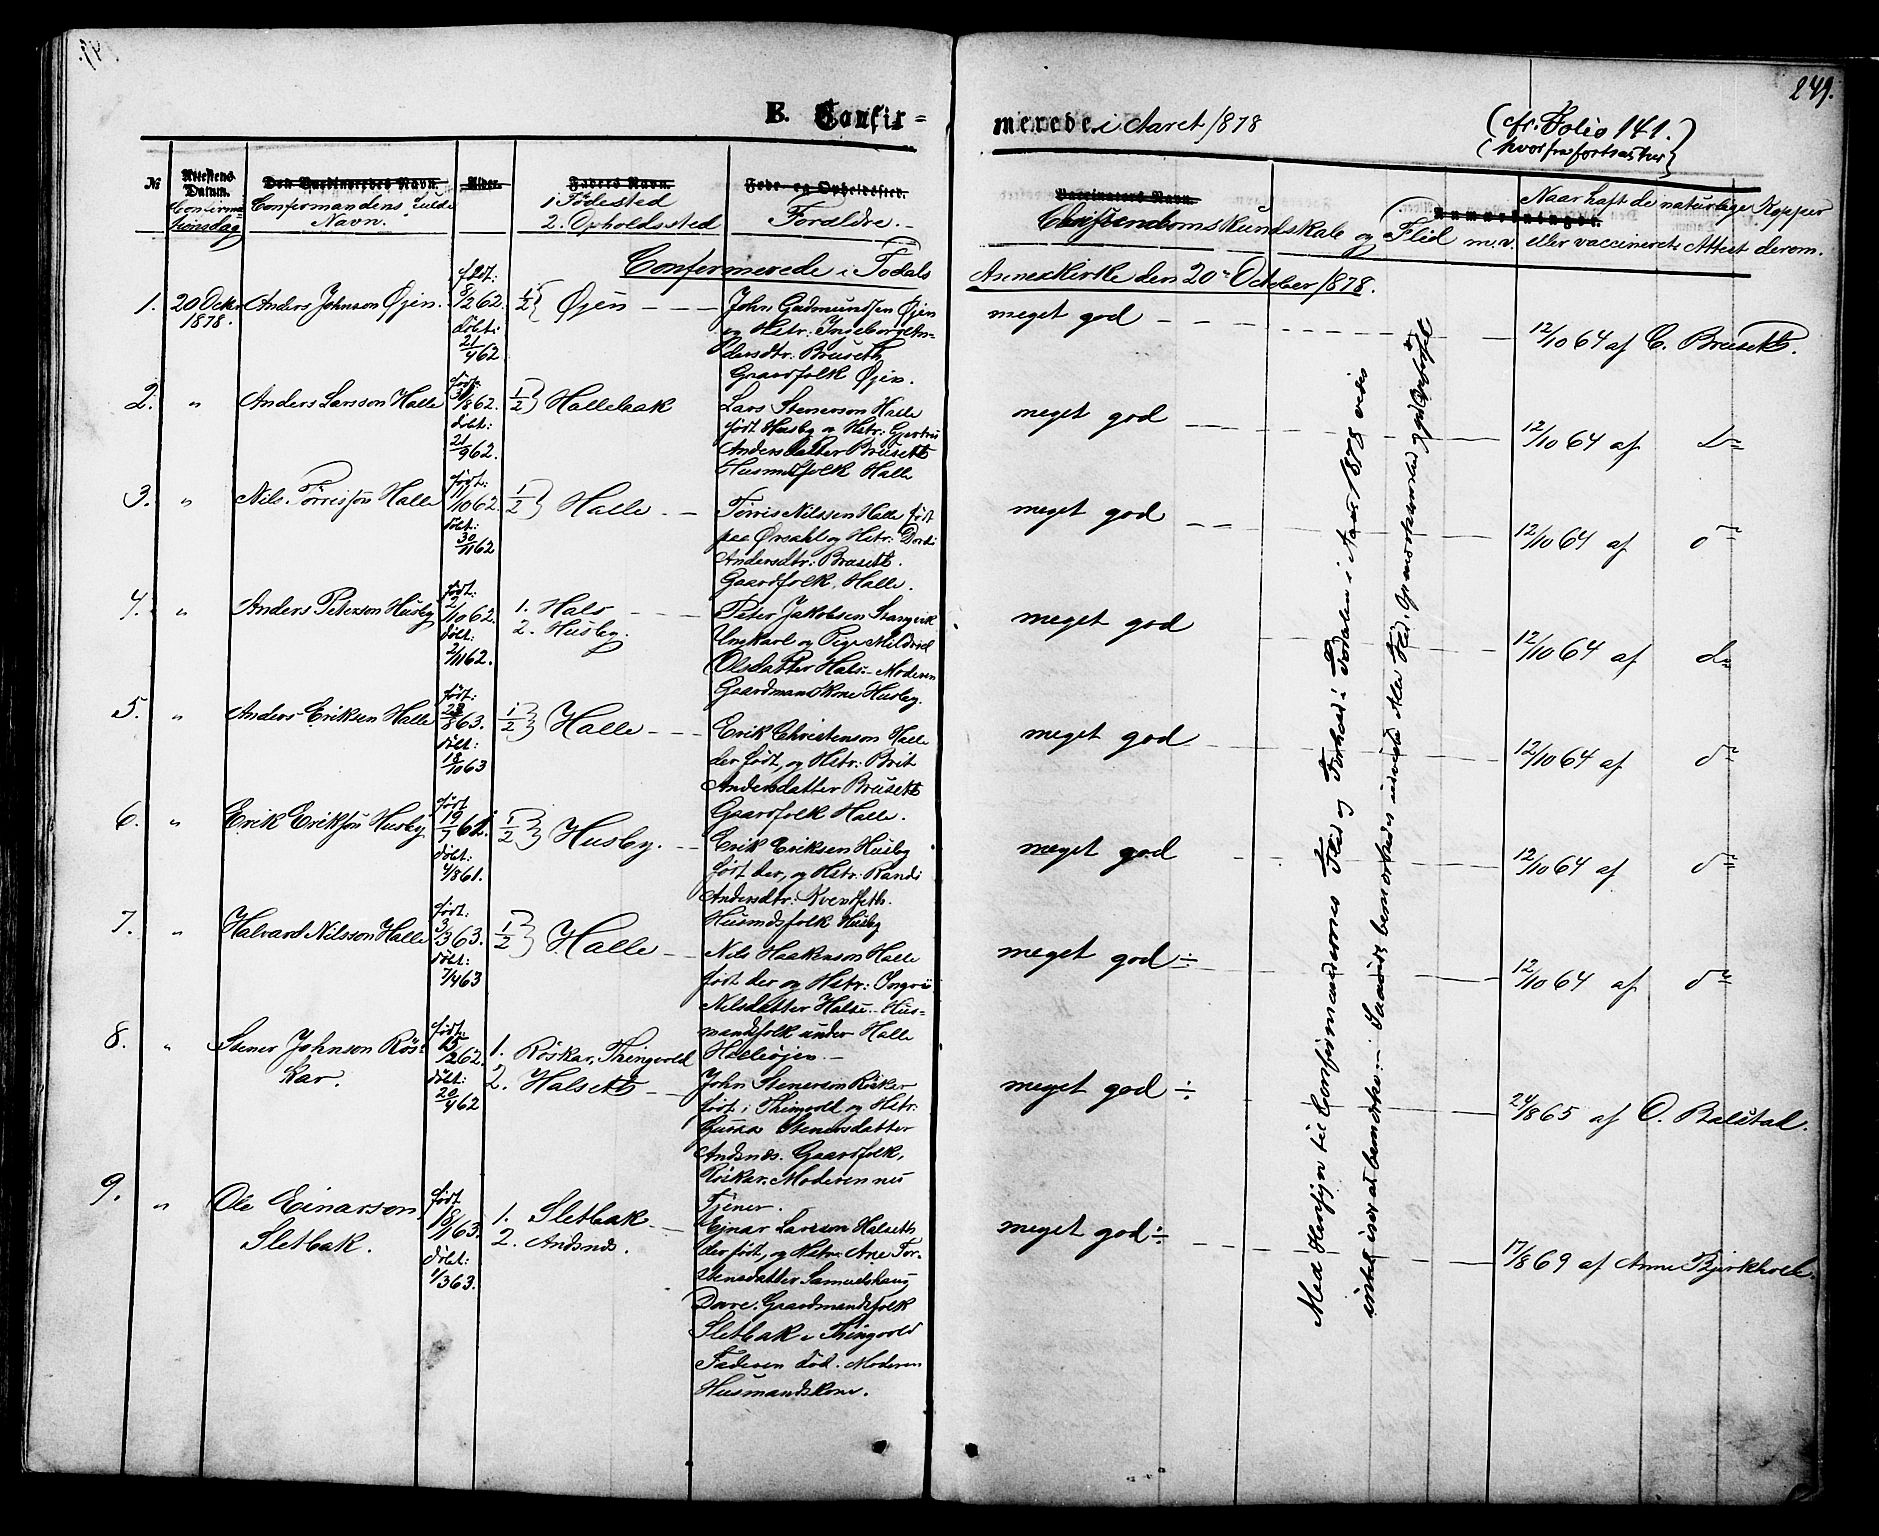 249.
B. Confir=
merede i Aaret 1878
(cfr. Folio 141.)
(hvorfra fortsættes)
№
Attestens Datum.
Confirmationsdag
Den Vaccineredes Navn.
Confermandens fulde Navn.
Alder.
Faders Navn.
1 Fødested
2. Opholdssted
Føde- og Opholdssted.
Forældre.
Vaccinators Navn.
Christendomskundskab og Flid m.v.
Anmærkninger.
Naar haft de naturlige Kopper
eller vaccineret & Attest derom.
Confermerede i Todals
Annexkirke den 20de October 1878.
1.
20 Octbr 1878.
Anders Johnson Øjen.
født: 8/2 62.
døbt: 21/4 62
1/2} Øjen
John Gudmundsen Øjen
og Hstr: Ingeborg An-
dersdtr: Bruseth
Gaardfolk Øjen.
meget god
12/10 64 af C. Bruseth.
2.
"
Anders Larsson Halle
født: 3/8 62.
døbt: 21/9 62.
1/2} Hallebak
Lars Stenerson Halle
født Husby og Hstr: Gjertru
Andersdatter Bruseth
Husmdsfolk Halle
meget god
12/10 64 af Do
3.
"
Nils Tørrisson Halle
født: 11/10 62.
døbt: 30/11 62
1/2} Halle
Tørris Nilssen Halle født
paa Ørsahl og Hstr: Dordi
Andersdtr: Bruseth.
Gaardfolk, Halle.
meget god
12/10 64 af do
4.
"
Anders Peterson Husby
født: 2/10 62.
døbt: 2/11 62.
1. Hals
2. Husby.
Peter Jakobsen Stangvik
Ungkarl og Pige Mildrid
Olsdatter Hals. Moderen
Gaardmandskone Husby.
meget god
12/10 64 af do
5.
"
Anders Eriksen Halle
født: 28/8 63.
døbt: 18/10 63
1/2} Halle
Erik Christenson Halle
der født, og Hstr: Brit
Andersdatter Bruseth
Gaardfolk Halle.
meget god
12/10 64 af do
6.
"
Erik Eriksson Husby.
født 19/7 61.
døbt: 4/8 61.
1/2} Husby.
Erik Eriksen Husby
født der, og Hstr: Randi
Andersdtr: Kvendseth.
Husmdsfolk Husby
meget god
12/10 64 af do
7.
"
Halvard Nilsson Halle
født: 3/3 63.
døbt: 7/4 63
1/2} Halle
Nils Haakenson Halle
født der og Hstr: Ingri
Nilsdatter Halse. Hus-
mandsfolk under Halle
Halleøjen.
meget god ÷
12/10 64 af do
8.
"
Stener Johnson Røs-
kar.
født: 15/2 62.
døbt: 20/4 62
1. Røskar, Thingvold
2. Halseth
John Stenerson Røskar
født i Thingvold og Hstr:
Guraa Stenersdatter
Andsnæs. Gaardfolk,
Røskar. Moderen nu
Tjener.
meget god ÷
24/8 65 af O. Balstal.
9.
"
Ole Einarson
Sletbak.
født 18/1 63.
døbt: 1/3 63.
1. Sletbak
2. Andsnæs.
Ejnar Larsson Halseth
der født, og Hstr: Ane Tor-
stensdatter Samuelshaug
Dovre. Gaardmandsfolk
Sletbak i Thingvold
Faderen død. Moderen
Husmandskone.
meget god ÷
17/8 69 af Anne Bjerkhoel.
Med Hensyn til Confirmandernes Flid og Forhold i Todalen i Aaret 1878 vides
intet især at bemærke.